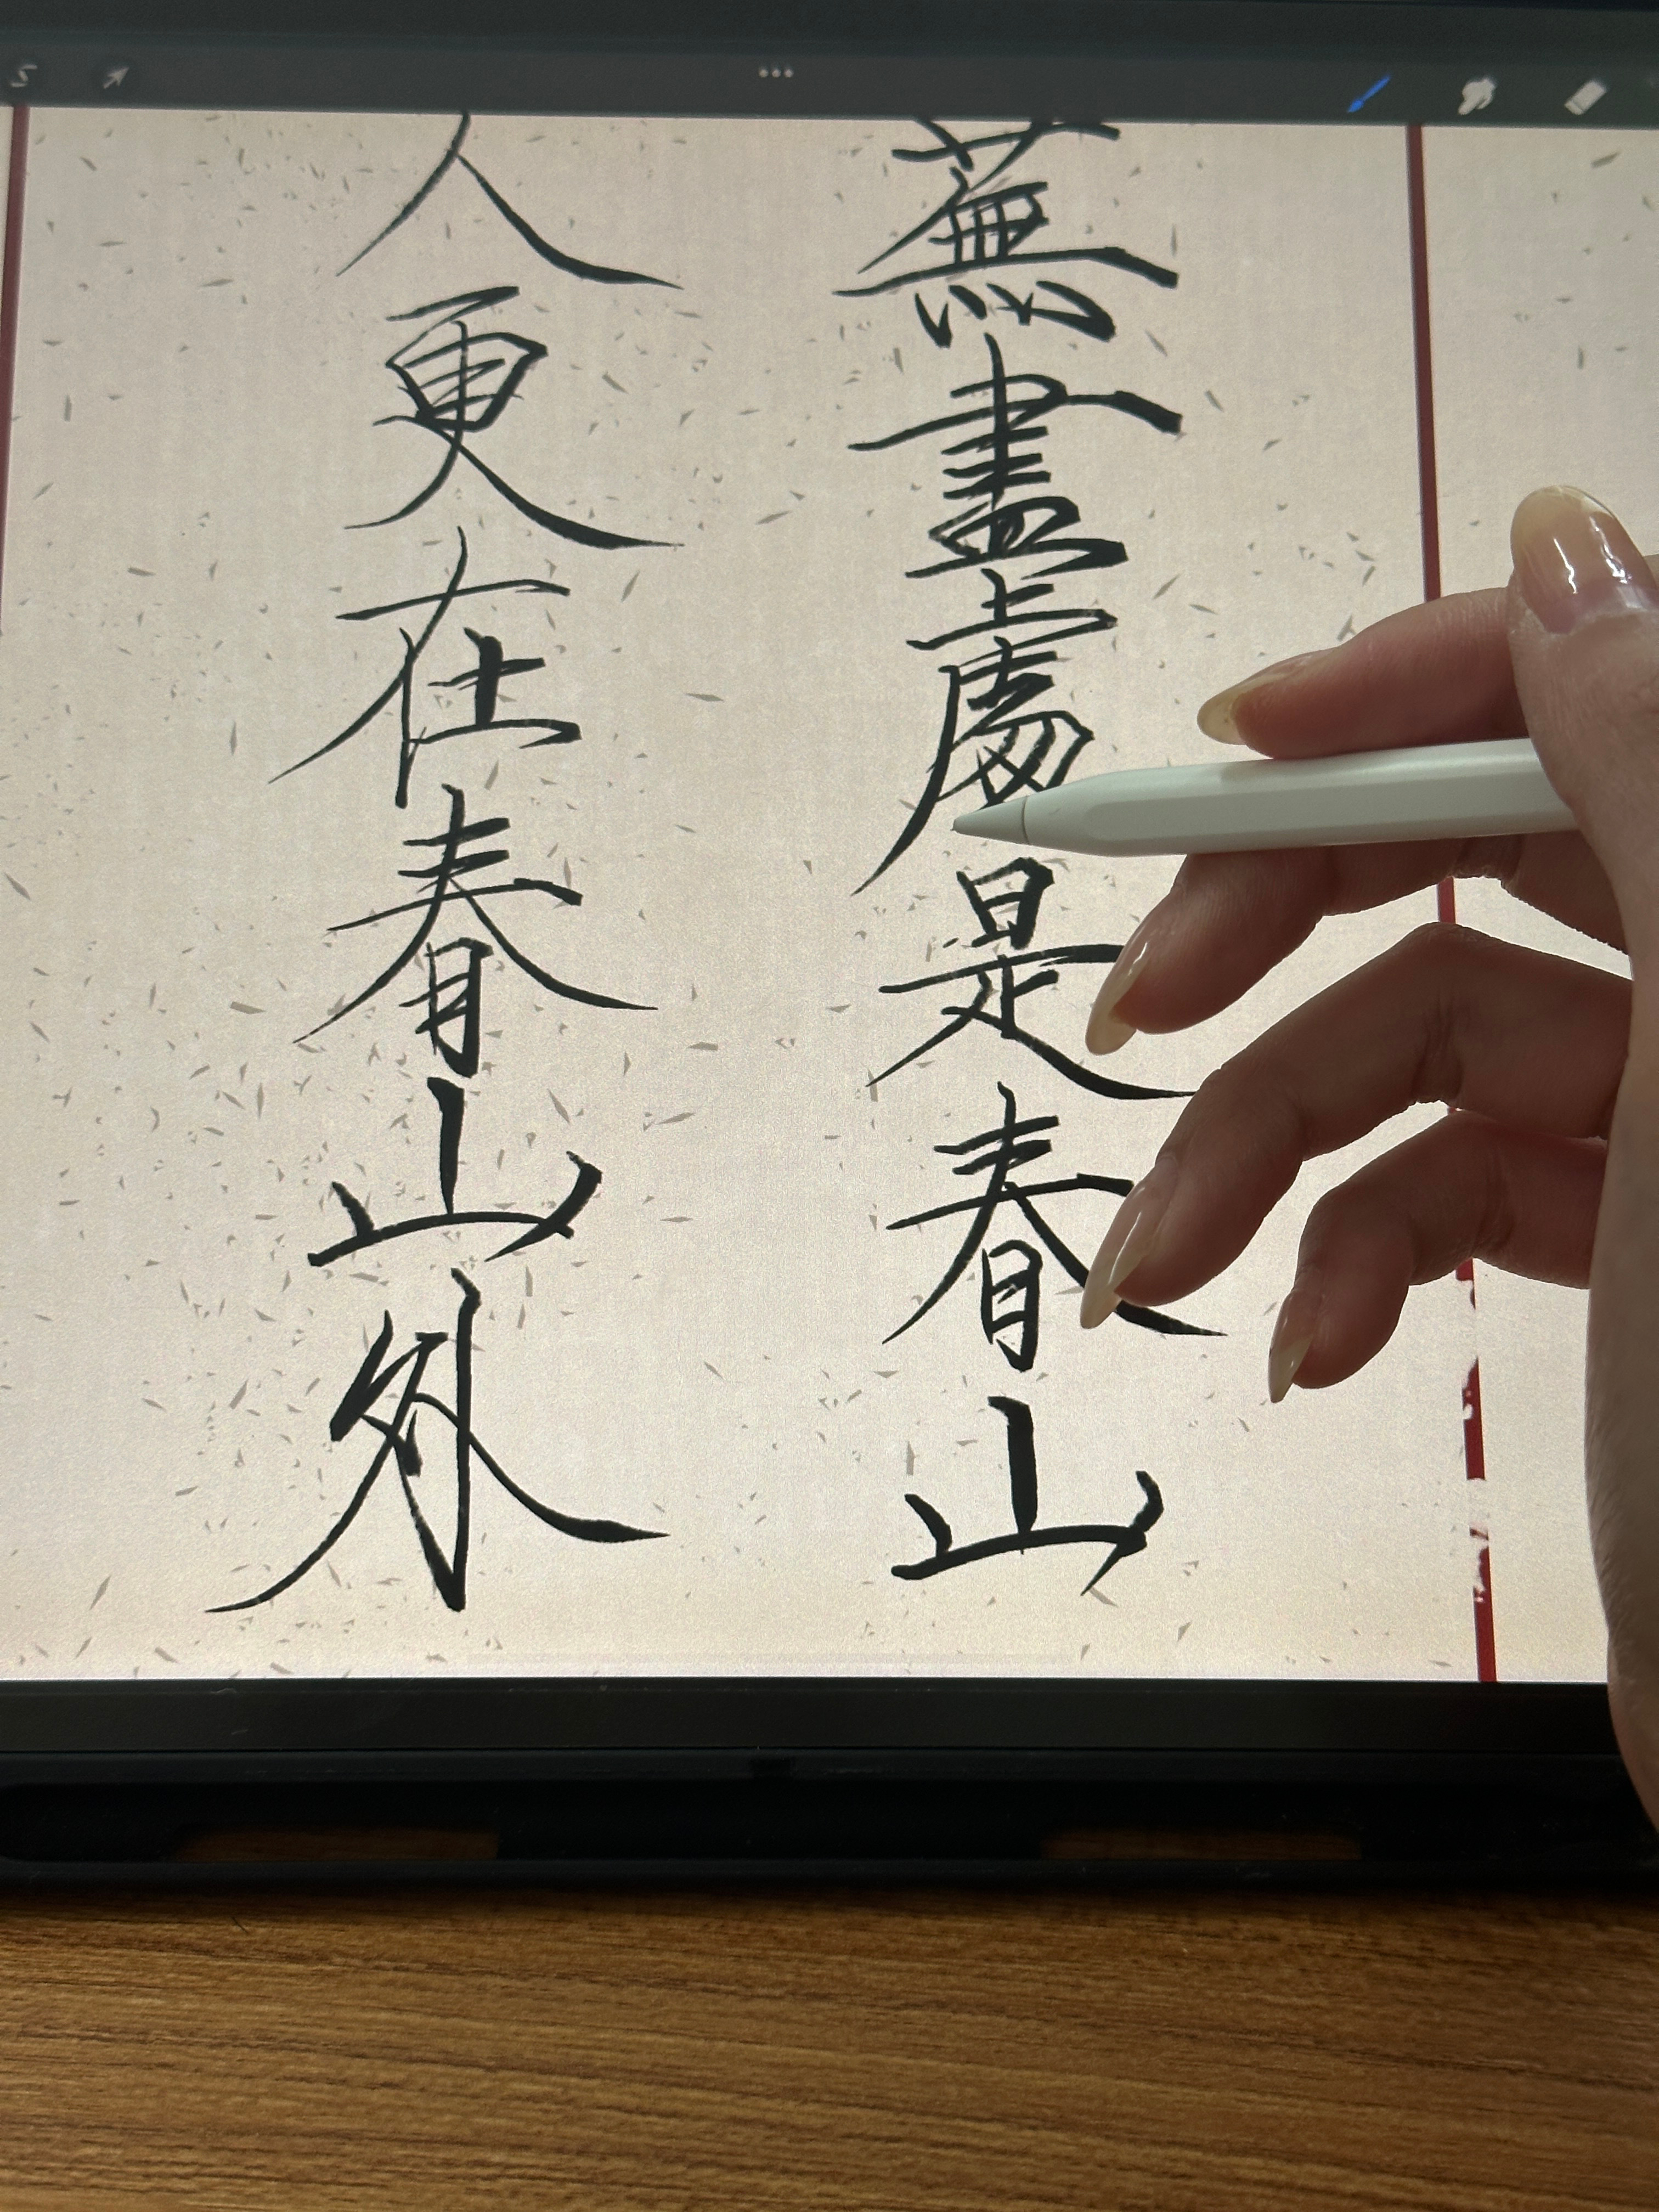 蕪盡處是春山
人更在春山外